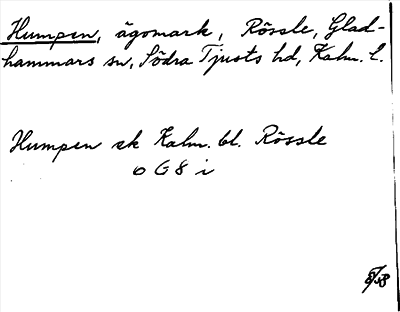 Humpen, ägomark, Rössle, Glad-
hammars sn, Södra Tjusts hd, Kalm. l.
Humpen ek Kalm. bl. Rössle
6 G 8 i